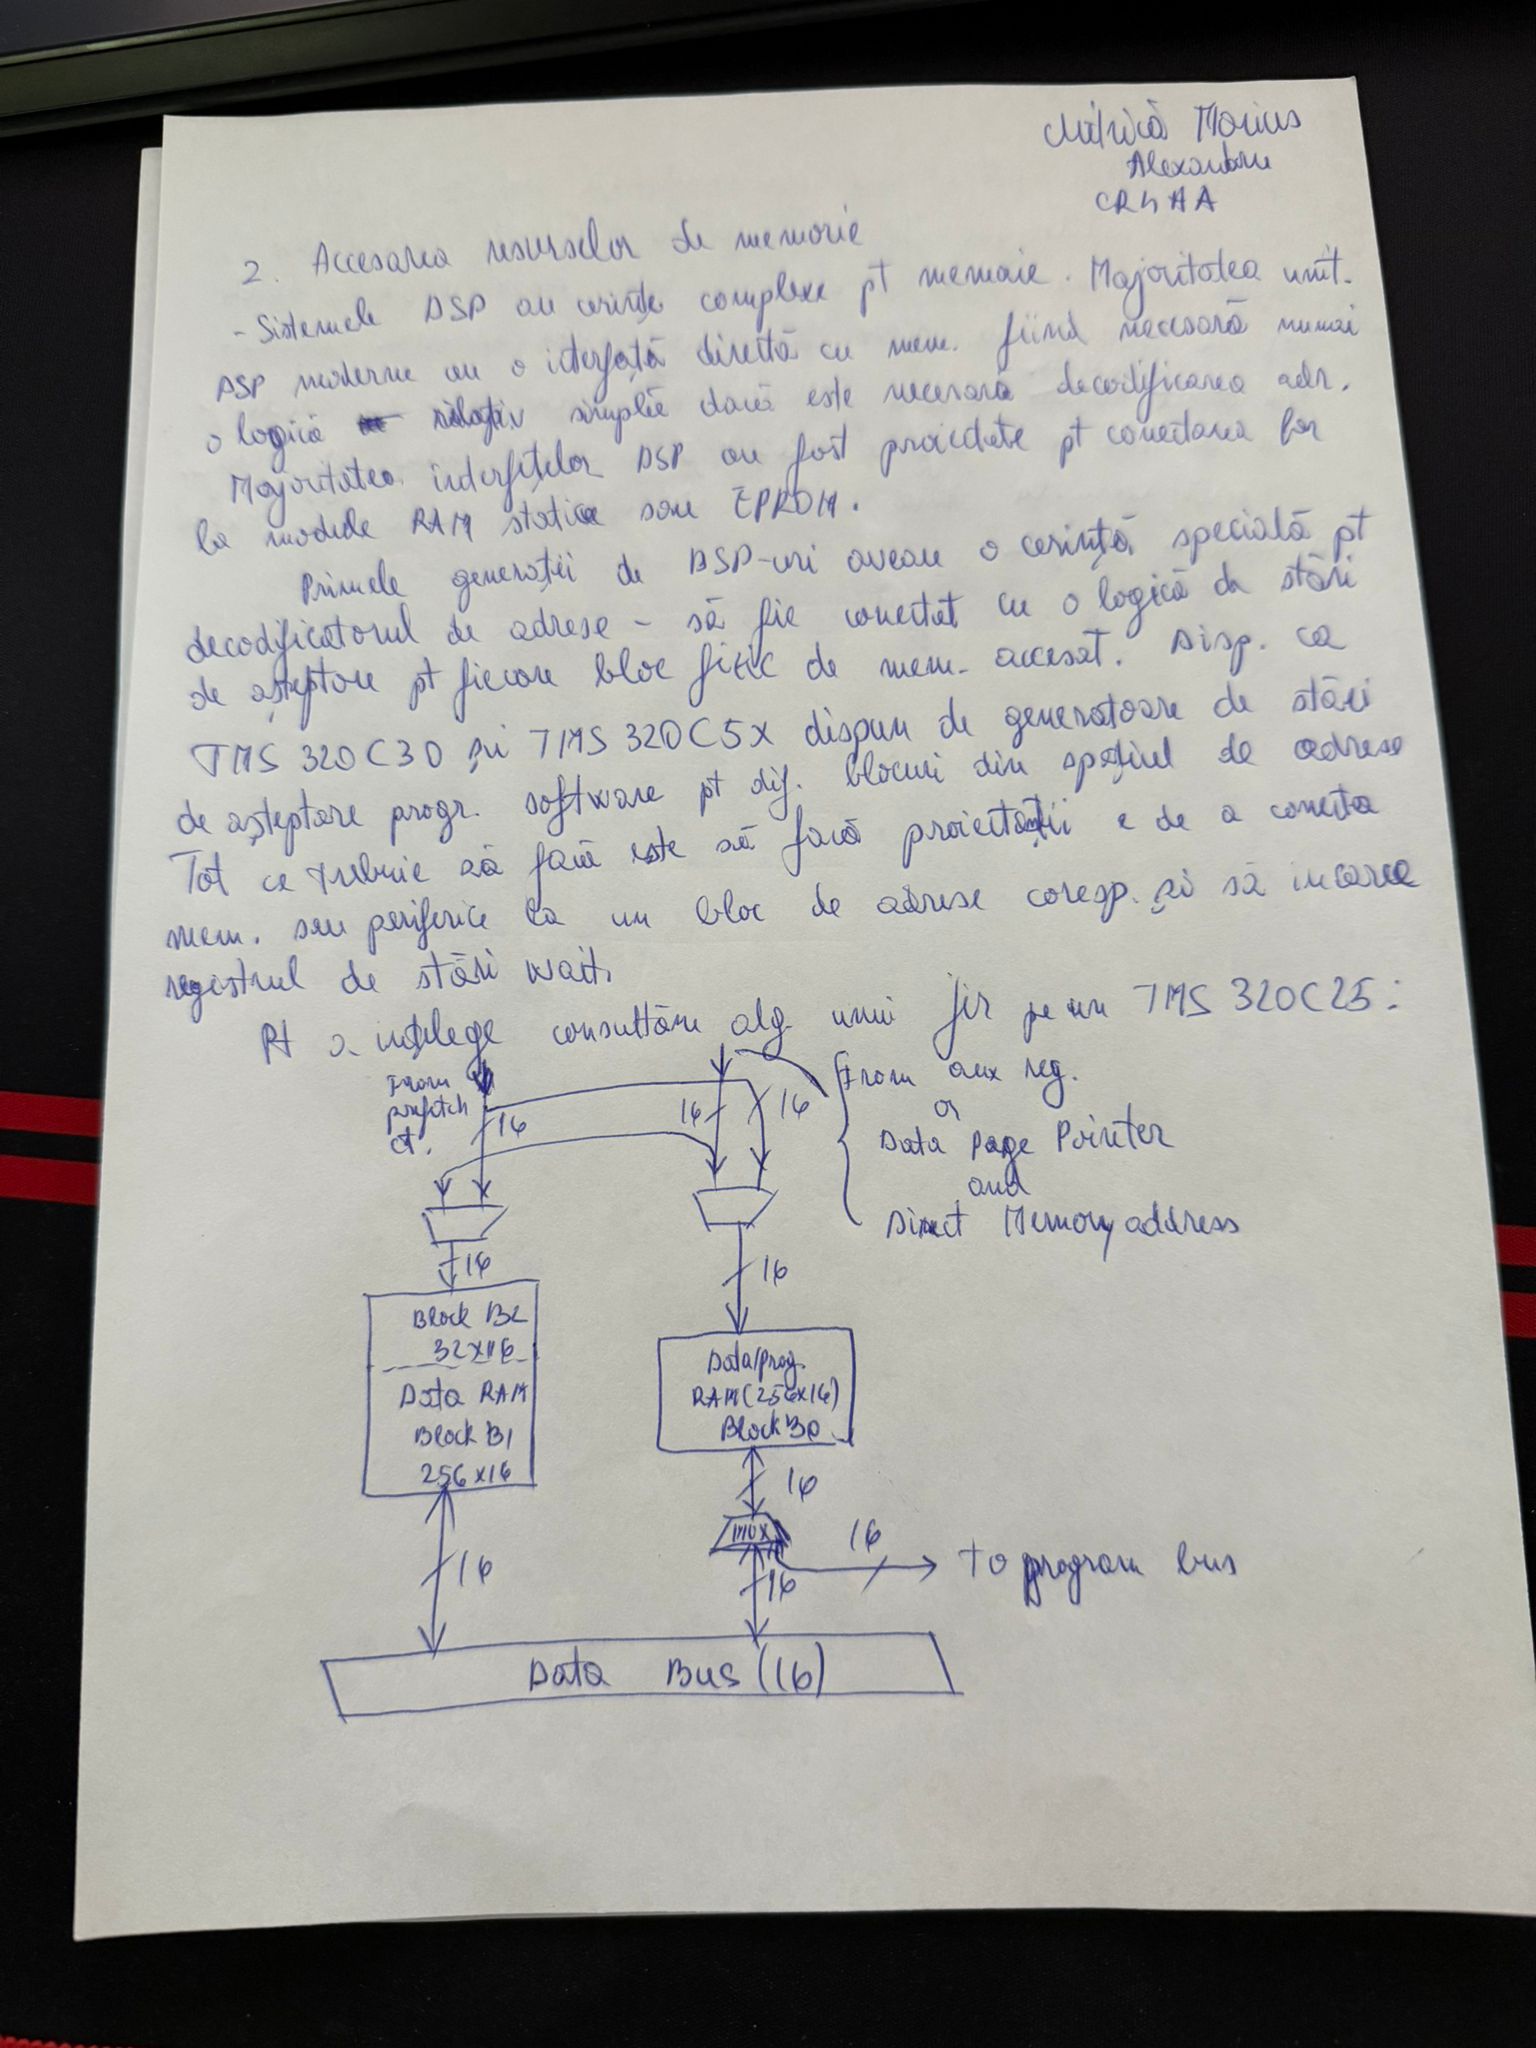 Mitrică Marius
Alexandru
CR4AA
2. Accesarea resurselor de memorie
- Sistemele DSP au cerințe complexe pt memorie. Majoritatea unit.
DSP moderne au o interfață directă cu mem. fiind necesară numai
o logică relativ simplă dacă este necesară decodificarea adr.
Majoritatea interfețelor DSP au fost proiectate pt conectarea lor
la module RAM statice sau EPROM.
Primele generații de DSP-uri aveau o cerință specială pt
decodificatorul de adrese - să fie conectat cu o logică de stări
de așteptare pt fiecare bloc fizic de mem. accesat. Disp. ca
TMS 320C30 și TMS 320C5X dispun de generatoare de stări
de așteptare progr. software pt dif. blocuri din spațiul de adrese
Tot ce trebuie să facă este să facă proiectanții e de a conecta
mem. sau periferice la un bloc de adrese coresp. și să incarce
registrul de stări wait.
Pt a ințelege consultăm alg. unui fir pe un TMS 320C25:
From prefetch ct.
16
16
16
From aux reg.
or
Data Page Pointer
and
Direct Memory address
16
16
Block B2
32x16
Data RAM
Block B1
256x16
Data/prog.
RAM(256x16)
Block B0
16
mux
16
16
16
to program bus
Data Bus(16)